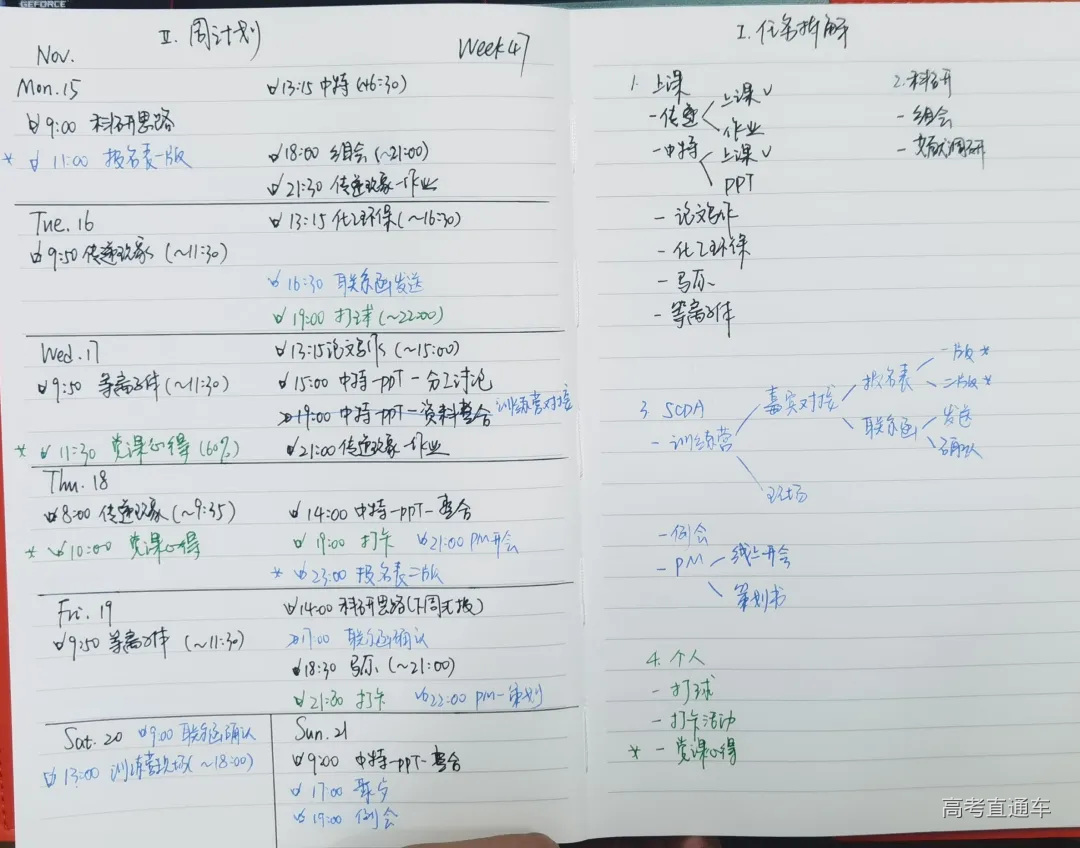 GEFORCE
II. 周计划
Nov.
Week 47
Mon. 15
9:00 科研思路
* 11:00 报名表一版
13:15 中特 (~16:30)
18:00 组会 (~21:00)
21:30 传递现象-作业
Tue. 16
9:50 传递现象 (~11:30)
13:15 化工环保 (~16:30)
16:30 联系函发送
19:00 打球 (~22:00)
Wed. 17
9:50 等离子体 (~11:30)
* 11:30 党课心得 (60%)
13:15 论文写作 (~15:00)
15:00 中特-ppt-分工讨论
19:00 中特-ppt-资料整合 训练营对接
21:00 传递现象-作业
Thu. 18
8:00 传递现象 (~9:35)
* 10:00 党课心得
14:00 中特-ppt-整合
19:00 打卡 21:00 PM开会
* 23:00 报名表二版
Fri. 19
9:50 等离子体 (~11:30)
14:00 科研思路(下周汇报)
17:00 联系函确认
18:30 马原 (~21:00)
21:30 打卡 22:00 PM-策划
Sat. 20 9:00 联系函确认
13:00 训练营现场 (~18:00)
Sun. 21
9:00 中特-ppt-整合
17:00 聚岁
19:00 例会
I. 任务拆解
1. 上课
- 传递 上课 √
作业
- 中特 上课 √
PPT
- 论文写作
- 化工环保
- 马原
- 等离子体
2. 科研
- 组会
- 文献调研
3. SCDA
- 训练营
嘉宾对接
报名表
一版 *
二版 *
联系函
发送
确认
现场
- 例会
- PM
线上开会
策划书
4. 个人
- 打球
- 打卡活动
* - 党课心得
高考直通车